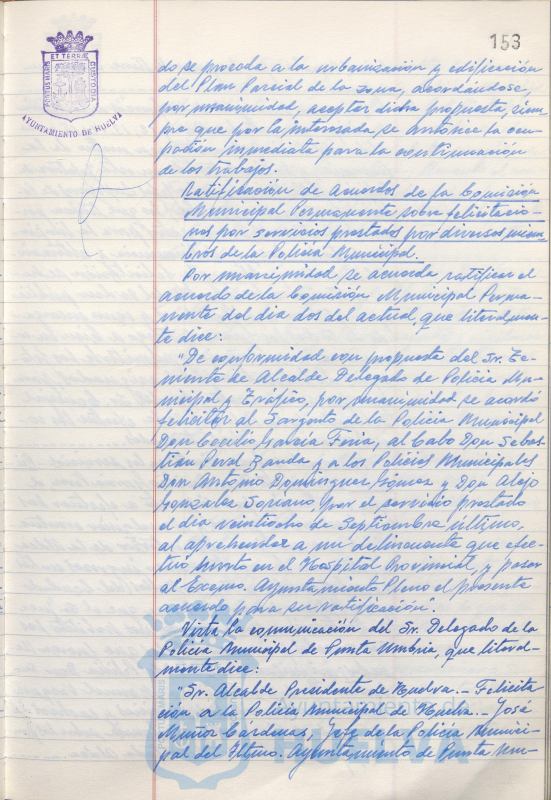 153
PORTUS MARIS ET TERRAE CUSTODIA
AYUNTAMIENTO DE HUELVA
do se proceda a la urbanización y edificación
del Plan Parcial de la zona, acordándose,
por unanimidad, aceptar dicha propuesta, siem-
pre que por la interesada, se autorice la ocu-
pación inmediata para la continuación
de los trabajos.
Ratificación de acuerdos de la Comisión
Municipal Permanente sobre felicitacio-
nes por servicios prestados por diversos miem-
bros de la Policía Municipal.
Por unanimidad se acuerda ratificar el
acuerdo de la Comisión Municipal Perma-
nente del día dos del actual, que literalmen-
te dice:
"De conformidad con propuesta del Sr. Te-
niente de Alcalde Delegado de Policía Mu-
nicipal y Tráfico, por unanimidad se acordó
felicitar al Sargento de la Policía Municipal
Don Cecilio García Feria, al Cabo Don Sebas-
tián Banda y a los Policías Municipales
Don Antonio Domínguez Gómez y Don Alejo
González Soriano, por el servicio prestado
el día veintiocho de Septiembre último,
al aprehender a un delincuente que efec-
tuó hurto en el Hospital Provincial, y pasar
al Excmo. Ayuntamiento Pleno el presente
acuerdo para su ratificación".
Vista la comunicación del Sr. Delegado de la
Policía Municipal de Punta Umbría, que literal-
mente dice:
"Sr. Alcalde Presidente de Huelva.- Felicita
ción a la Policía Municipal de Huelva.- José
Muñoz Cárdenas, Jefe de la Policía Munici-
pal del Iltmo. Ayuntamiento de Punta Um-